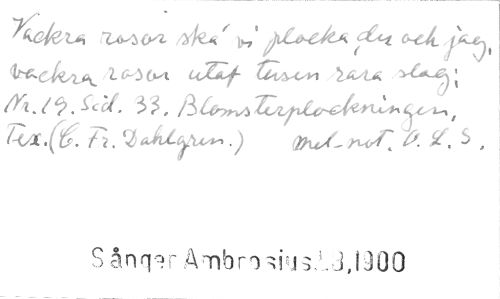 Vackra rosor ska' vi plocka, du och jag,
vackra rosor utaf tusen rara slag;
Nr. 19. Sid. 33. Blomsterplockningen,
Tex. (C. Fr. Dahlgren.) mel-not. O. L. S.
Sånger Ambrosius 3,1900